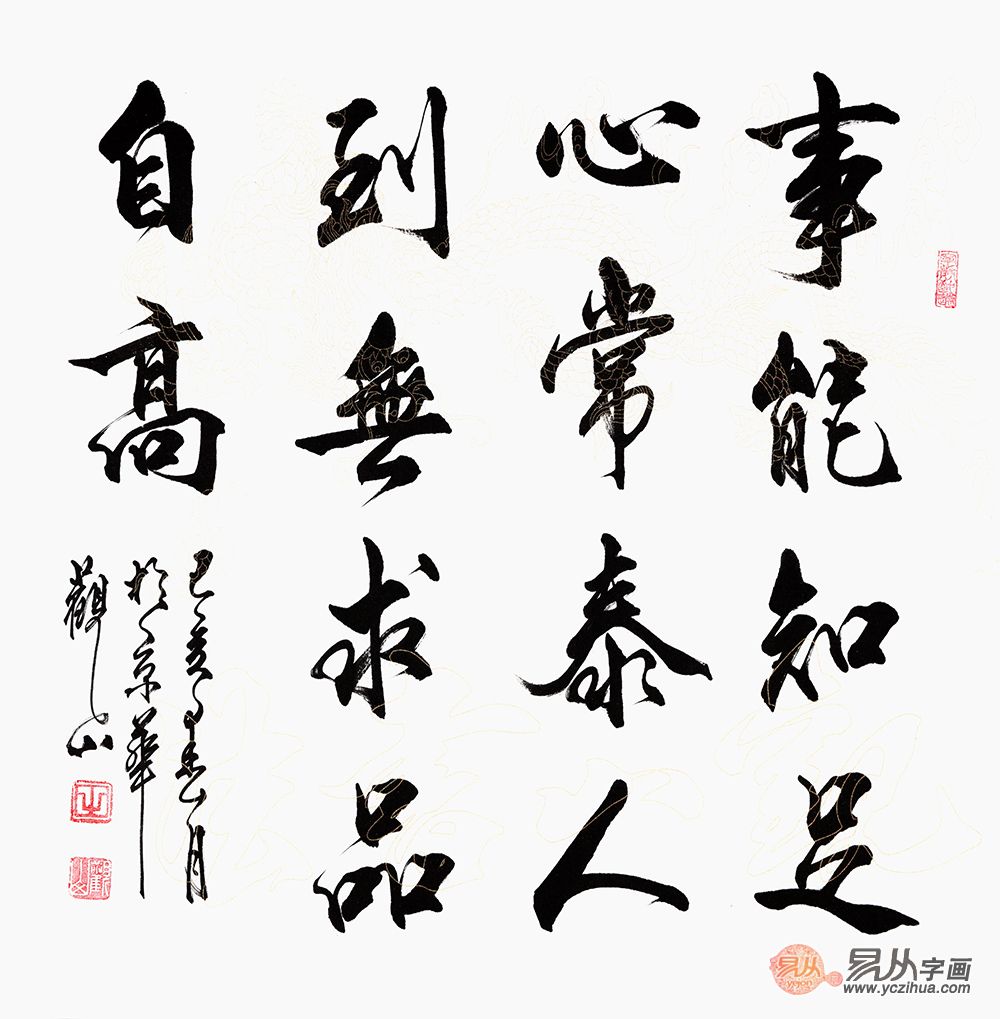 事能知足
心常泰人
到無求品
自高
己亥年春月
於京華
觀山
易从
yojon
易从字画
www.yczihua.com